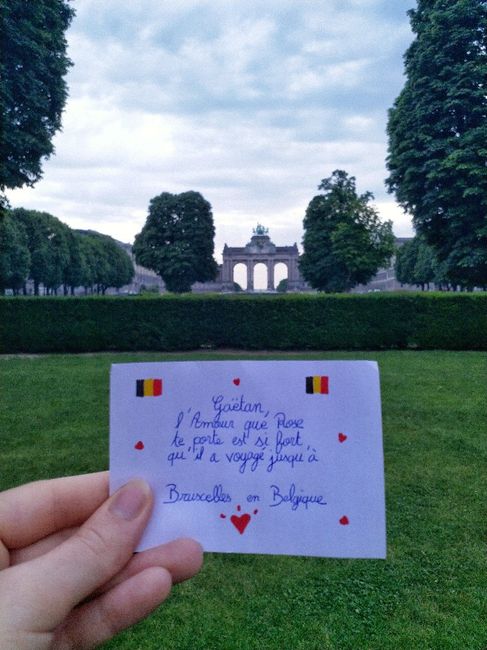 Gaëtan,
l'Amour que Rose
te porte est si fort
qu'il a voyagé jusqu'à
Bruxcelles en Belgique